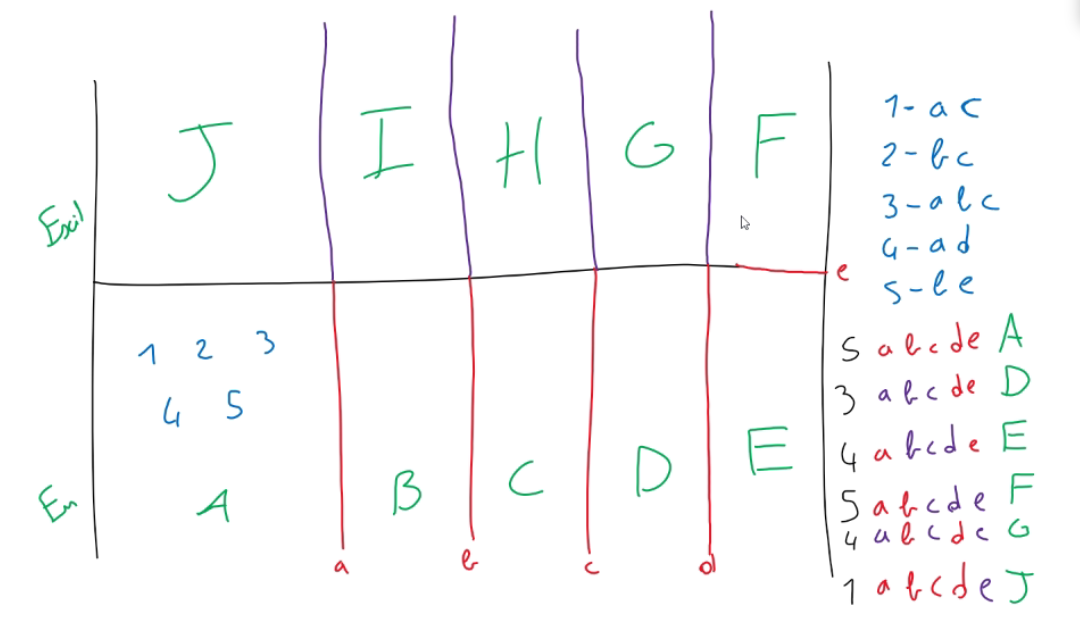 J I H G F
Exit
e
1 2 3
4 5
En A B C D E
a b c d
1- a c
2- b c
3- a b c
4- a d
5- b e
5 a b c d e A
3 a b c d e D
4 a b c d e E
5 a b c d e F
4 a b c d e G
1 a b c d e J